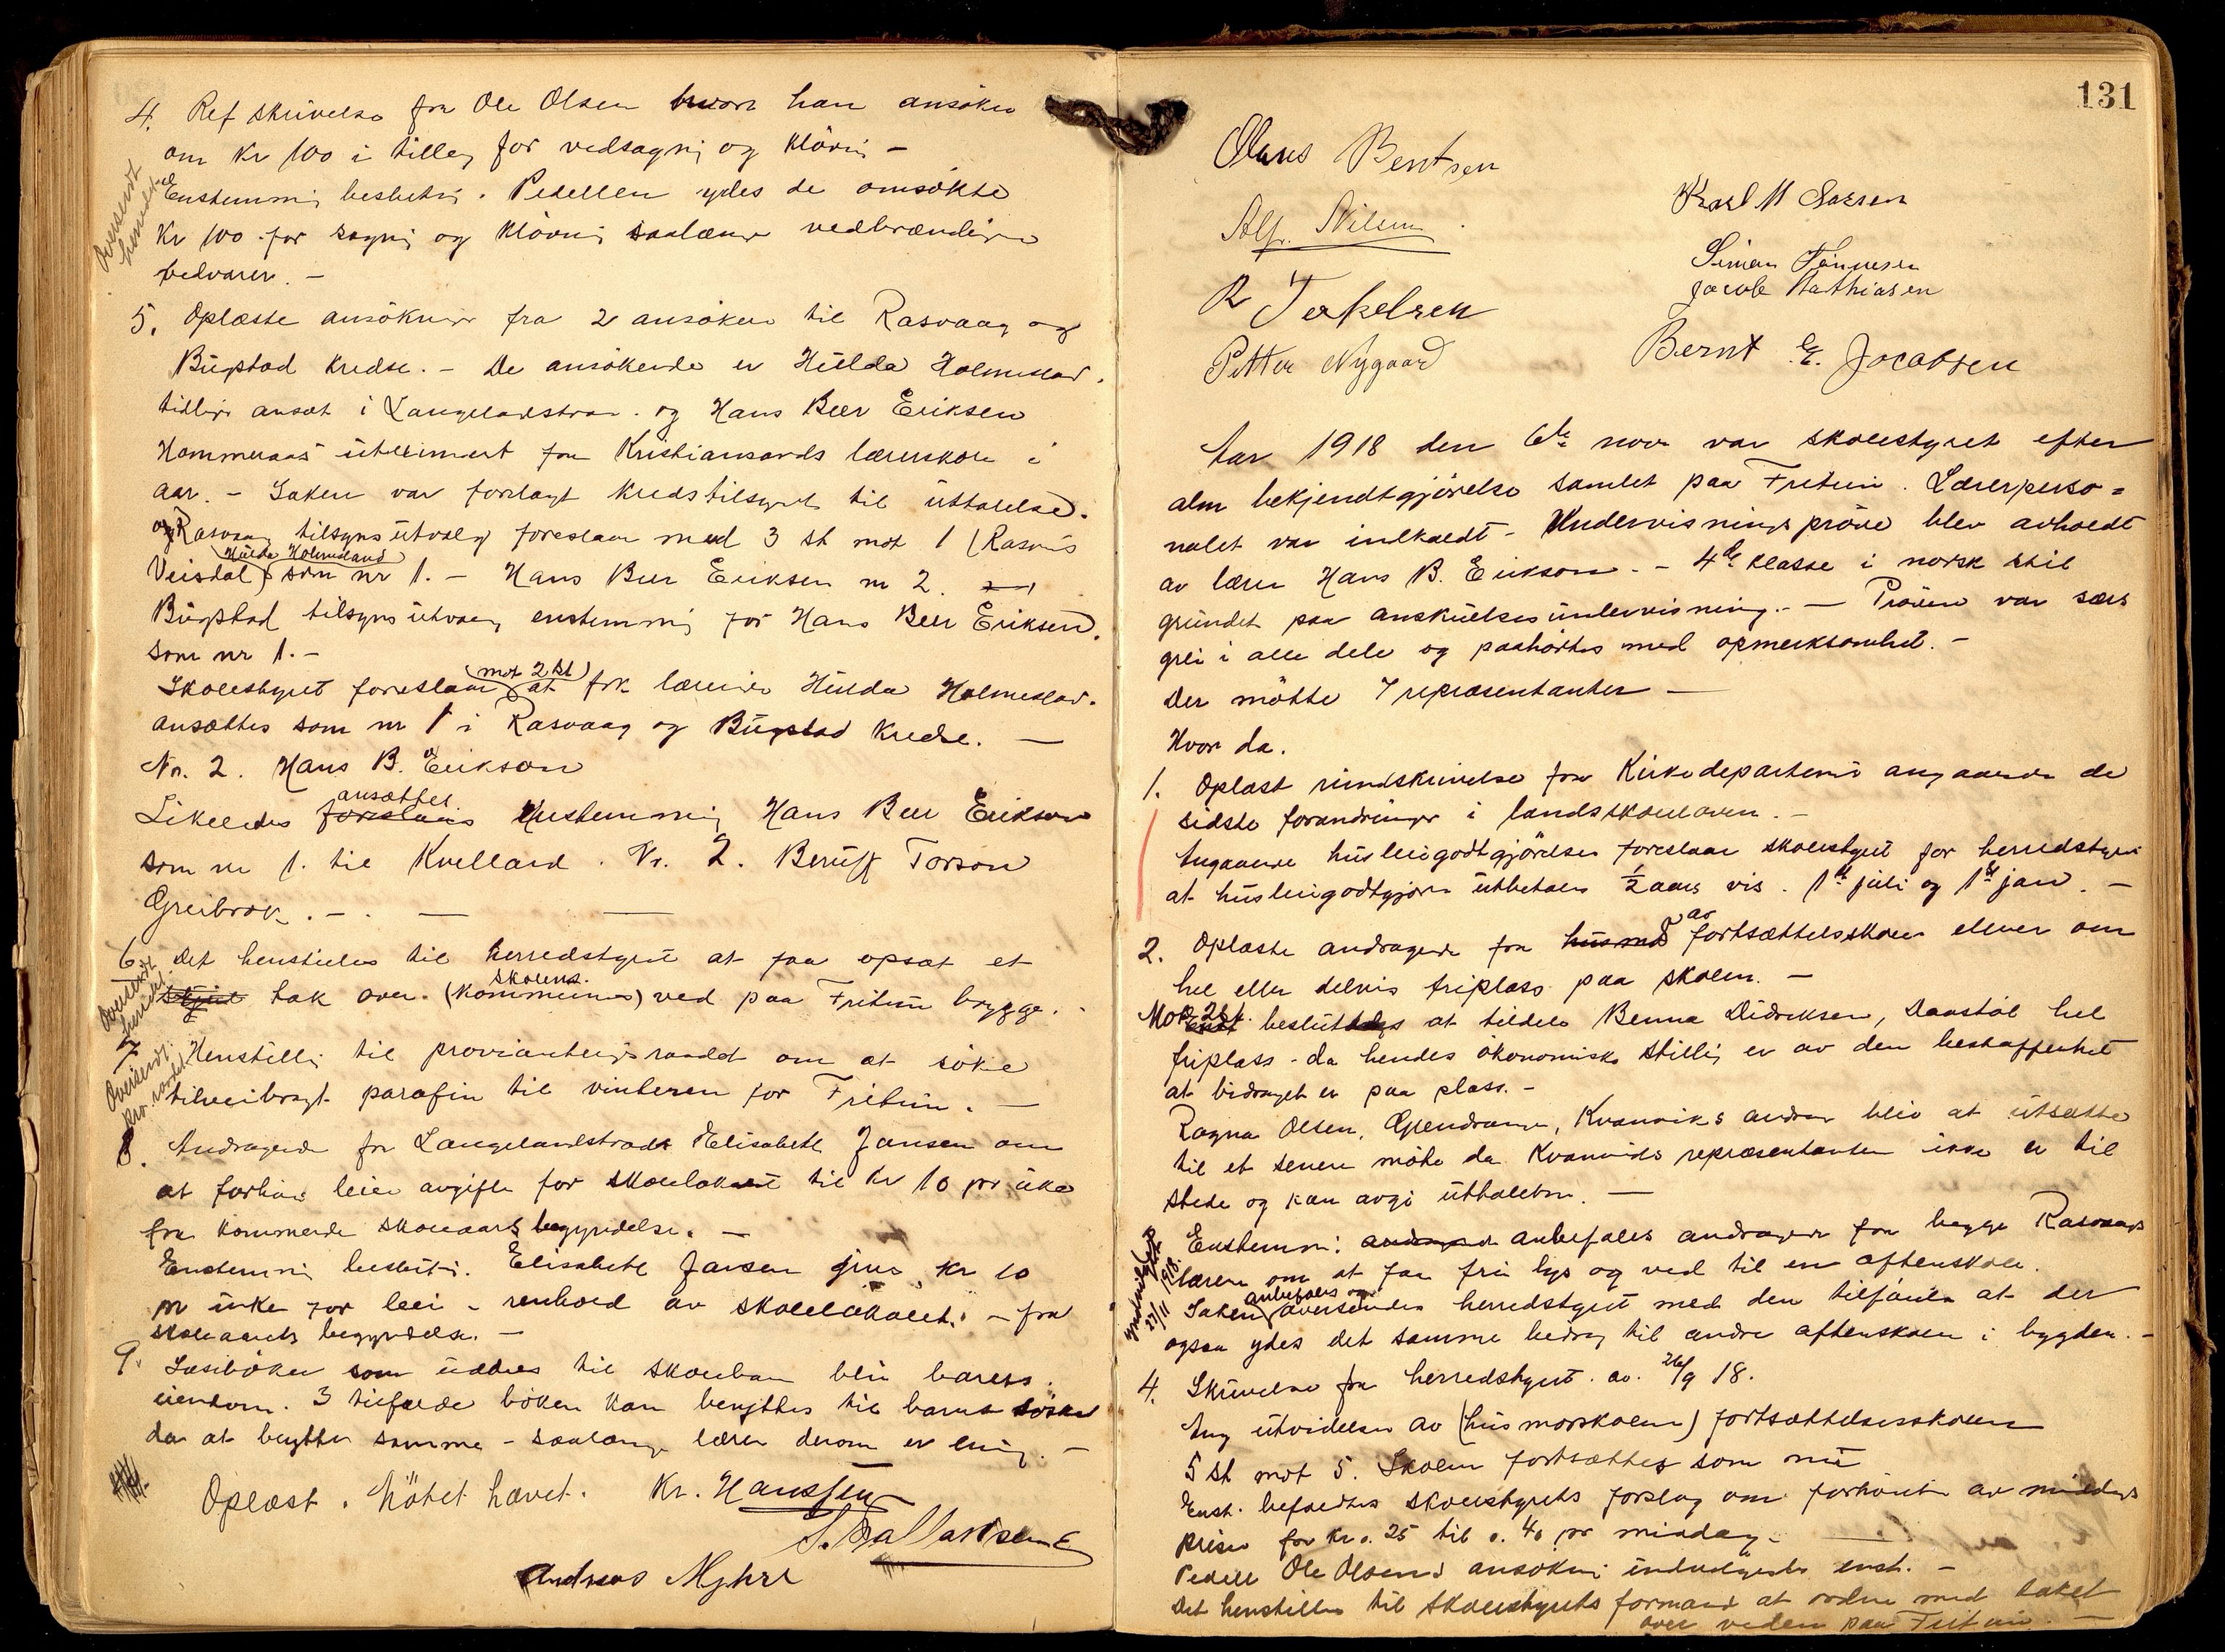 4. Ref skrivelse fra Ole Olsen hvori han ansøker
om Kr 100 i tillæg for vedsagning og kløvin –
Oversendt
herredst.
Enstemmig beslutn. Pedellen ydes de omsøkte
Kr 100 for sagnig og kløvning saalænge vedbrændingen
vedvarer. –
5. Oplæste ansøkninger fra 2 ansøkere til Rasvaag og
Bugstad kredse. – De ansøkende er Hulda Holmesland.
tidligere ansat i Langelandstran. og Hans Beer Eriksen
Hommeraas uteksimert fra Kristiansands lærerskole i
aar. – Saken var forelagt kredstilsynet til uttalelse.
og Rasvaag tilsynsutvalg foreslaar med 3 st mot 1 (Rasmus
Hulda Holmesland
Veisdal) som nr 1. – Hans Beer Eriksen nr 2.
Bugstad tilsynsutvalg enstemmig for Hans Beer Eriksen.
som nr 1. –
(mot 2 st)
Skolestyret foreslaar at frk lærerinde Hulda Holmesland.
ansættes som nr 1 i Rasvaag og Bugstad kredse. –
Nr. 2. Hans B. Eriksen
ansættes.
Likeledes foreslaaes Enstemmig Hans Beer Eriksen
som nr 1. til Kvelland. Nr. 2. Berulf Torson
Greibrok. – . — —
6 Det henstilles til herredstyret at faa opsat et
Oversendt
herredst.
skolens.
skjul tak over (kommunens) ved paa Fritun brygge. –
7 Henstilling til provianteringsraadet om at søke
Oversendt
prv. raadet
tilveibragt parafin til vinteren for Fritun. —
8. Andragende fra Langelandstrads Elisabeth Jansen om
at forhøie leie avgiften for skolelokalet til kr 10 pr uke
fra kommende skoleaars begyndelse. —
Enstemmig beslutn. Elisabeth Jansen gives kr 10
pr uke for leei – renhold av skolelokalet. – fra
skoleaarets begyndelse. –
9. Læsebøker som uddeles til skolebarn blir barets
eiendom. I tilfælde bøken kan benyttes til barnets søsken
da at benytte samme – saalænge lærer derom er enig. –
Oplæst. Møtet hævet. Kr. Hanssen
S. Ballartsen
Andreas Myhre
131
Olaus Bentsen
Karl M Larsen
Alf. Nilsen
Simon Tønnesen
Jacob Mathiasen
R Terkelsen
Petter Nygaard
Bernt E. Jacobsen
Aar 1918 den 6te novr var skolestyret efter
alm bekjendtgjørelse samlet paa Fritun. Lærerperso=
nalet var indkaldt – Undervisningsprøve blev avholdt
av lærer Hans B. Erikson. – 4de klasse i norsk stil
grundet paa anskuelsesundervisning. – Prøven var særs
grei i alle dele og paahørtes med opmerksomhet. –
Der møtte 7 repræsentanter —
Hvor da.
1. Oplæst rundskrivelse fra Kirkedepartement angaaende de
sidste forandringer i landsskoleloven. –
Angaaende husleiegodtgjørelser foreslaar skolestyret for herredstyret
at husleiegodtgjøre utbetales ½ aars vis. 1ste juli og 1ste jan. –
av
2. Oplæste andragende fra husmo fortsættelsesskolen elever om
hel eller delvis friplass paa skolen. –
Mot 2 st.
Enst besluttedes at tildele Benna Didriksen, Daastøl hel
friplass – da hendes økonomiske stilling er av den beskaffenhet
at bidraget er paa plass. –
Ragna Olsen, Gjendrange, Kvanviks andrag. blev at utsætte
til et senere møte da Kvanviks repræsentanter ikke er til
stede og kan avgi uttalelsen. —
27/11 1918.
Enstemmi: andragende anbefales andragende fra begge Rasvaags
lærere om at faa fri lys og ved til en aftenskole.
anbefales og
Saken oversendes herredstyret med den tilføielse at der
ogsaa ydes det samme bidrag til andre aftenskoler i bygden. –
4. Skrivelse fra herredstyret. av. 26/9 18.
Ang utvidelse av (husmorskolen) fortsættelsesskolen
5 st mot 5. Skolen fortsættes som nu
Enst. befaltes skolestyrets forslag om forhøielse av middags
prisen for kr 0.25 til 0.40 pr middag. —
Pedell Ole Olsens ansøkning indvilgedes enst. –
Det henstilles til skolestyrets formand at ordne med taket
over veden paa Fritun. —